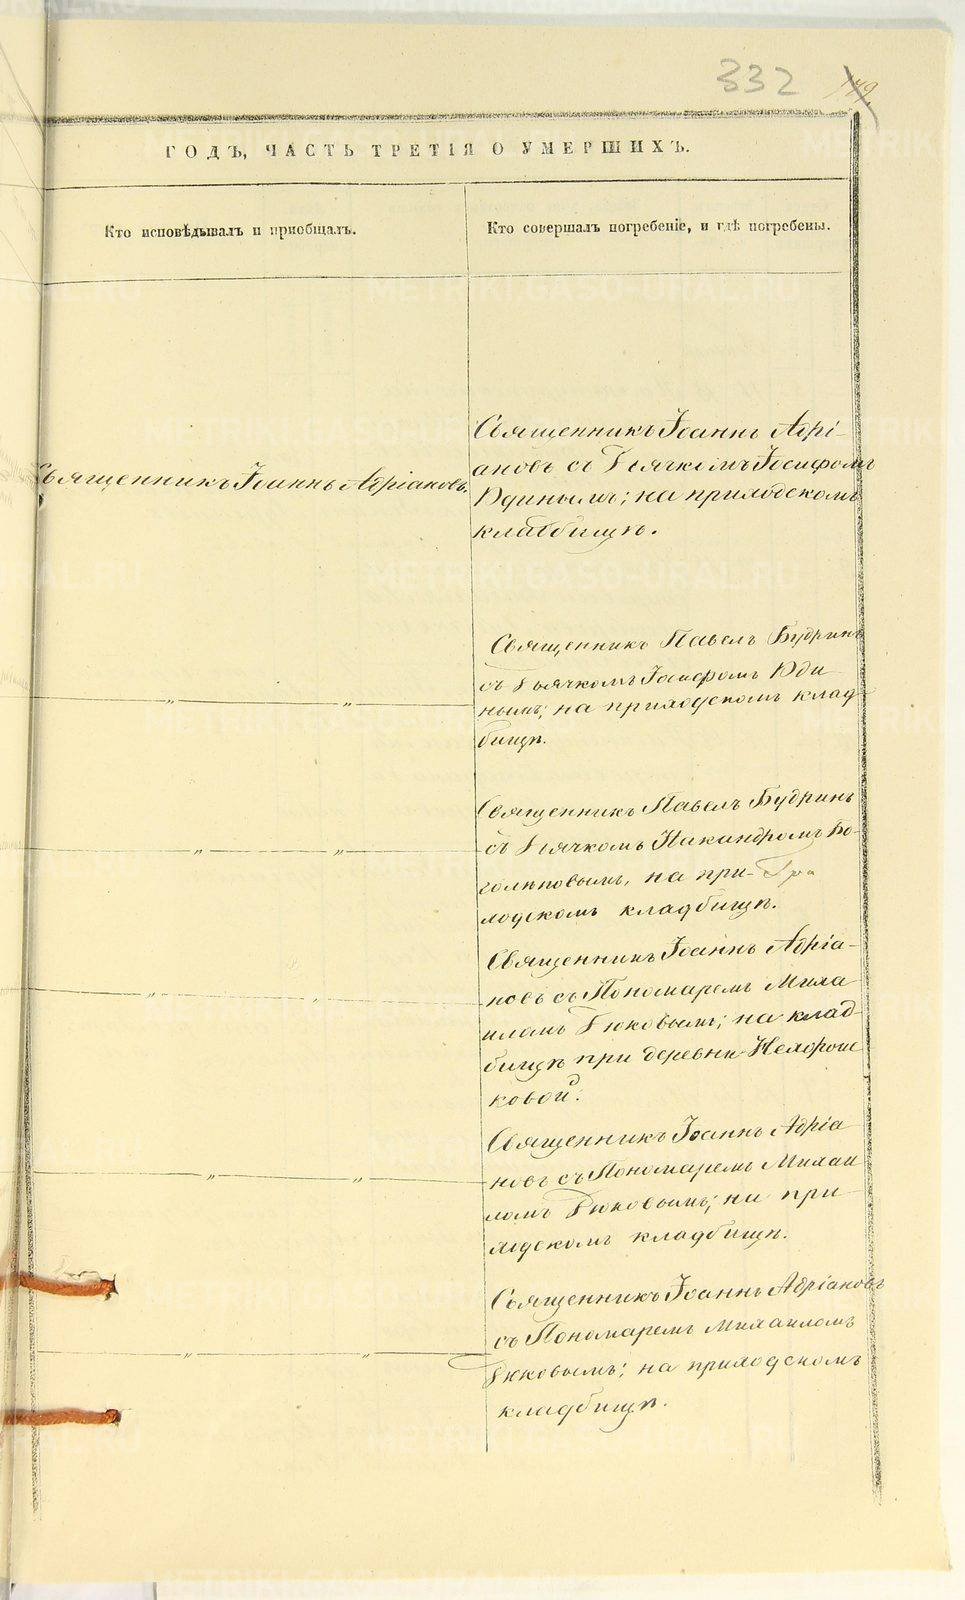 332
149
ГОДЪ, ЧАСТЬ ТРЕТІЯ О УМЕРШИХЪ.
Кто исповѣдывалъ и приобщалъ.
Кто совершалъ погребеніе, и гдѣ погребены.
Священникъ Іоаннъ Адріановъ.
Священникъ Іоаннъ Адрі-
ановъ съ Дьячкомъ Іосифомъ
Юдинымъ; на приходскомъ
кладбищѣ.
Священникъ Павелъ Будринъ
съ Дьячкомъ Іосифомъ Юди-
нымъ; на приходскомъ клад-
бищѣ.
Священникъ Павелъ Будринъ
съ Дьячкомъ Никандромъ Бо-
голѣповымъ, на при-
ходскомъ кладбищѣ.
Священникъ Іоаннъ Адріа-
новъ съ Пономаремъ Миха
иломъ Дюковымъ; на клад-
бищѣ при деревнѣ
ковой.
Священникъ Іоаннъ Адріа
новъ съ Пономаремъ Михаи
ломъ Дюковымъ; на при
ходскомъ кладбищѣ.
Священникъ Іоаннъ Адріановъ
съ Пономаремъ Михаиломъ
Дюковымъ; на приходскомъ
кладбищѣ.
METRIKI.GASO-URAL.RU